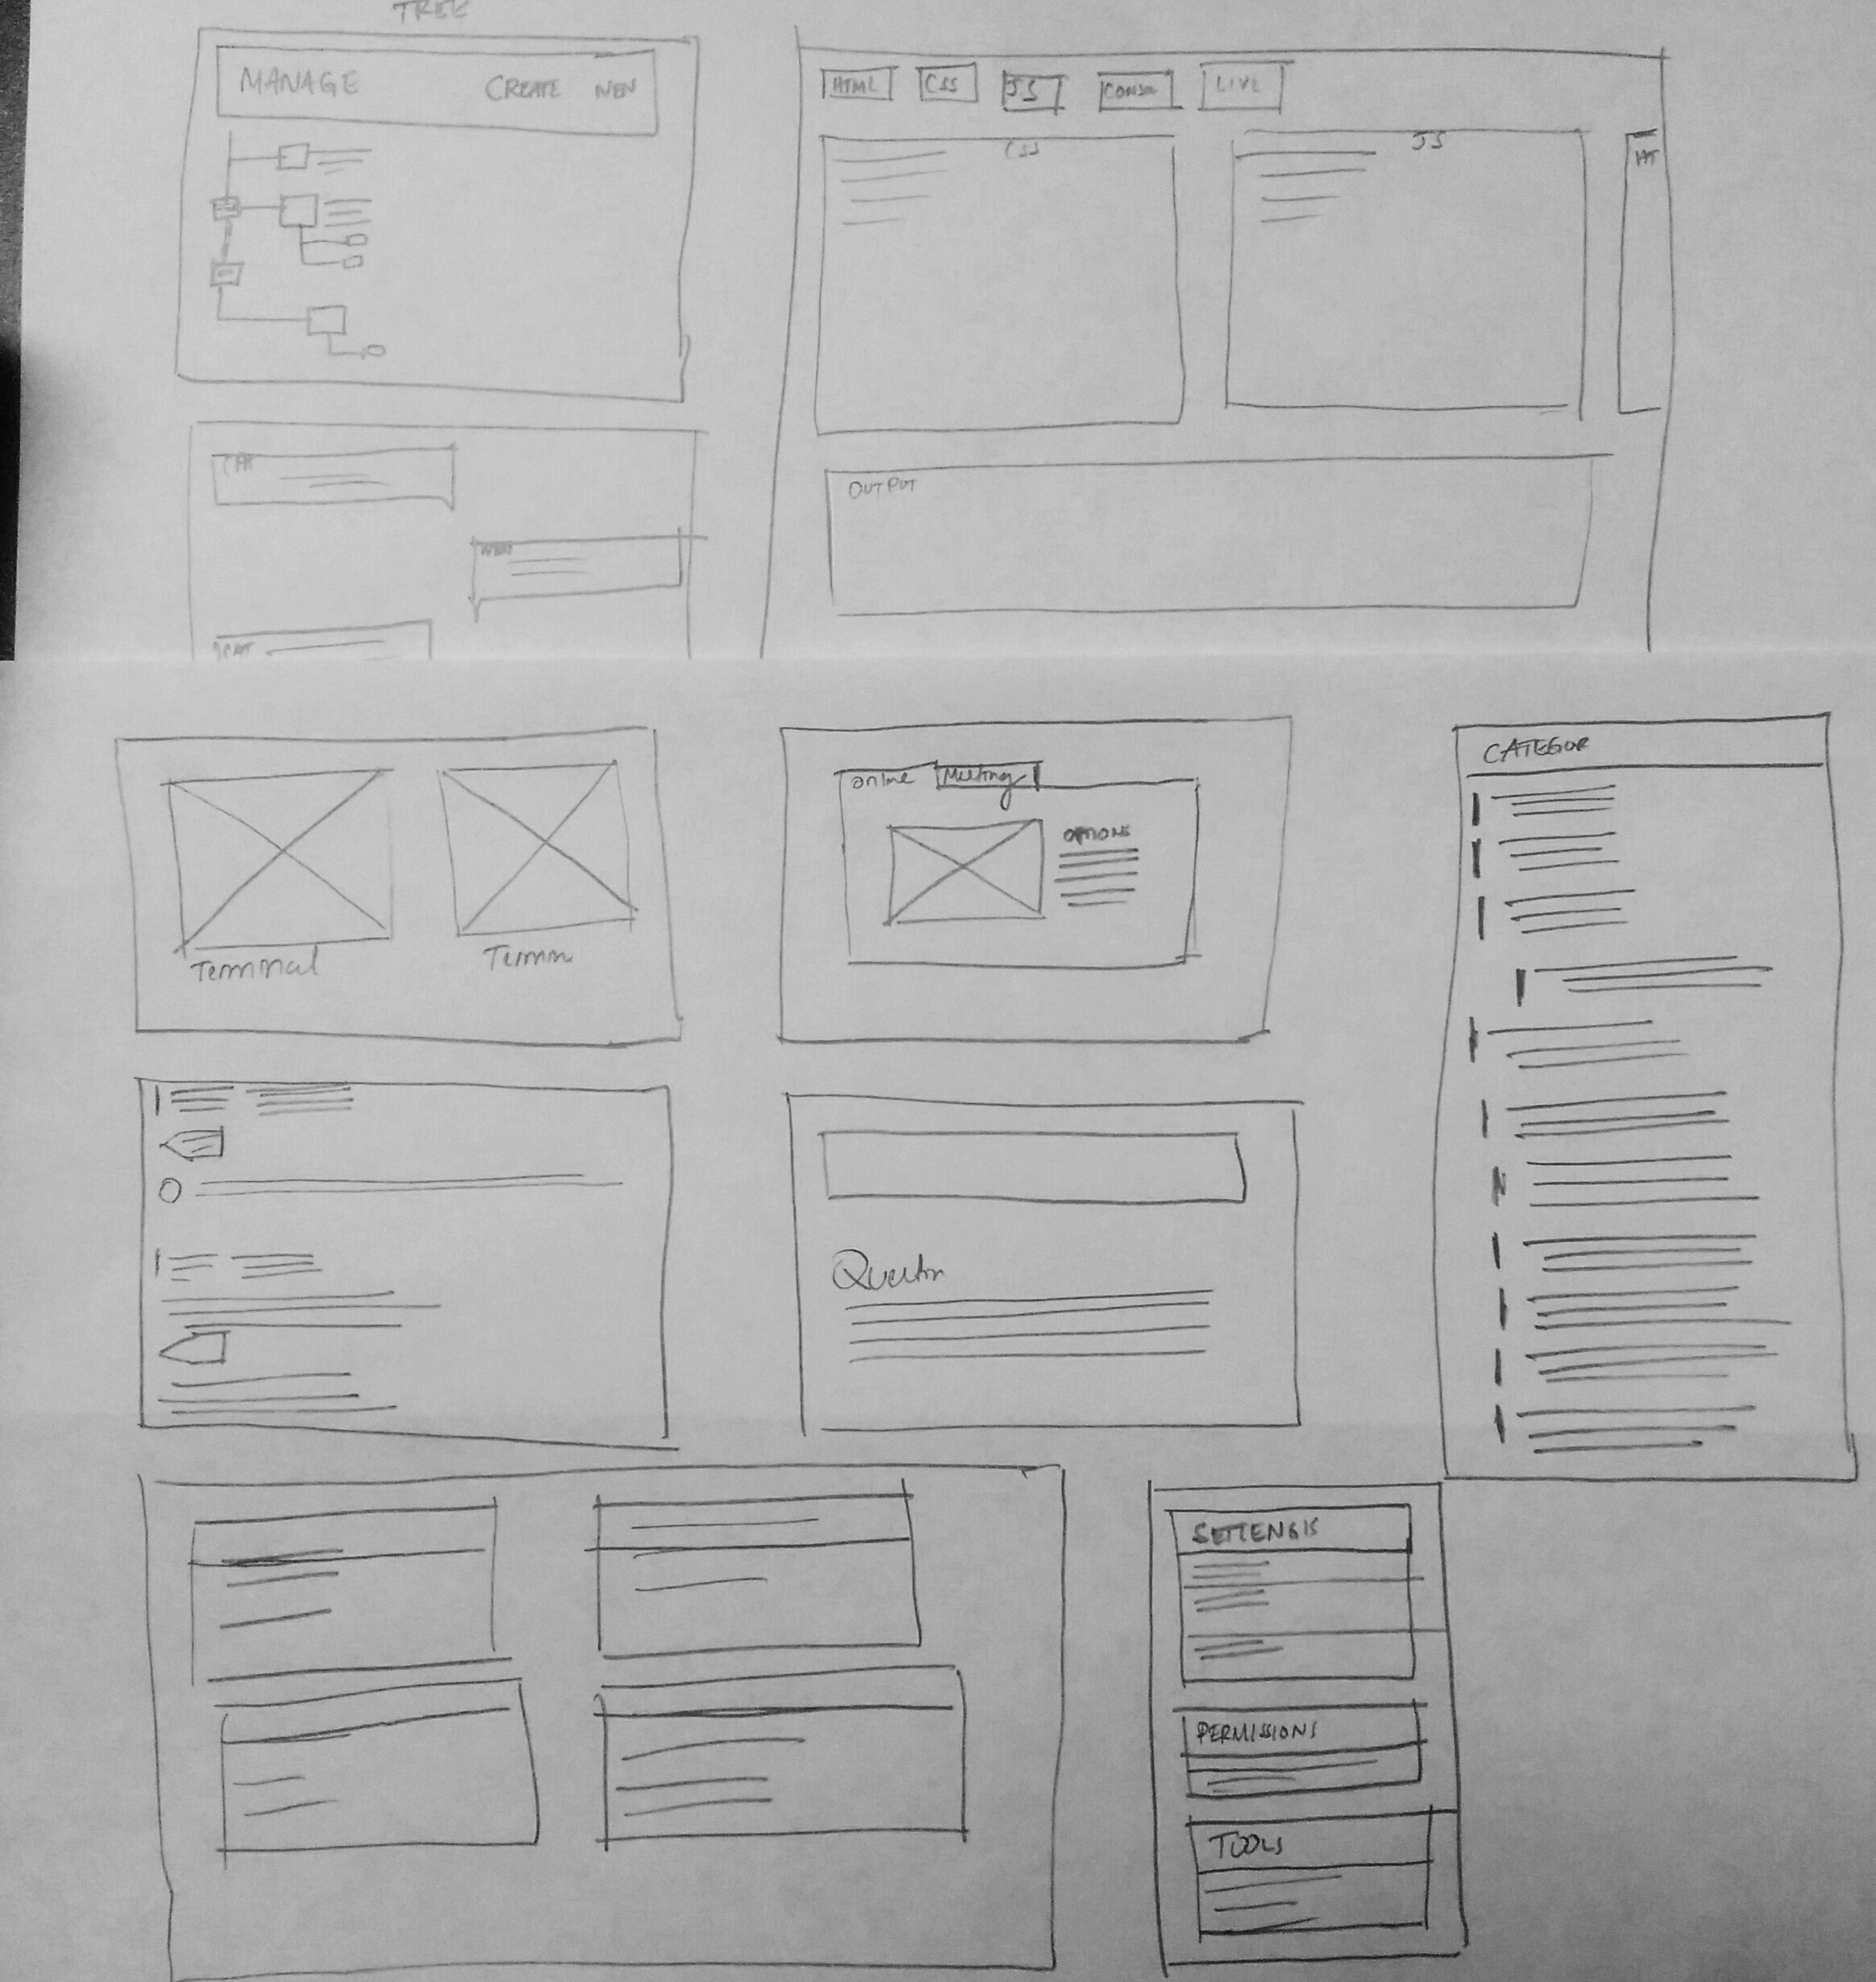 TREE
MANAGE CREATE NEW
HTML CSS JS CONSOL LIVE
CSS JS HT
OUTPUT
CAT
Terminal Termin
online Meeting
OPTIONS
CATEGOR
SETTENGIS
PERMISSIONS
TOOLS